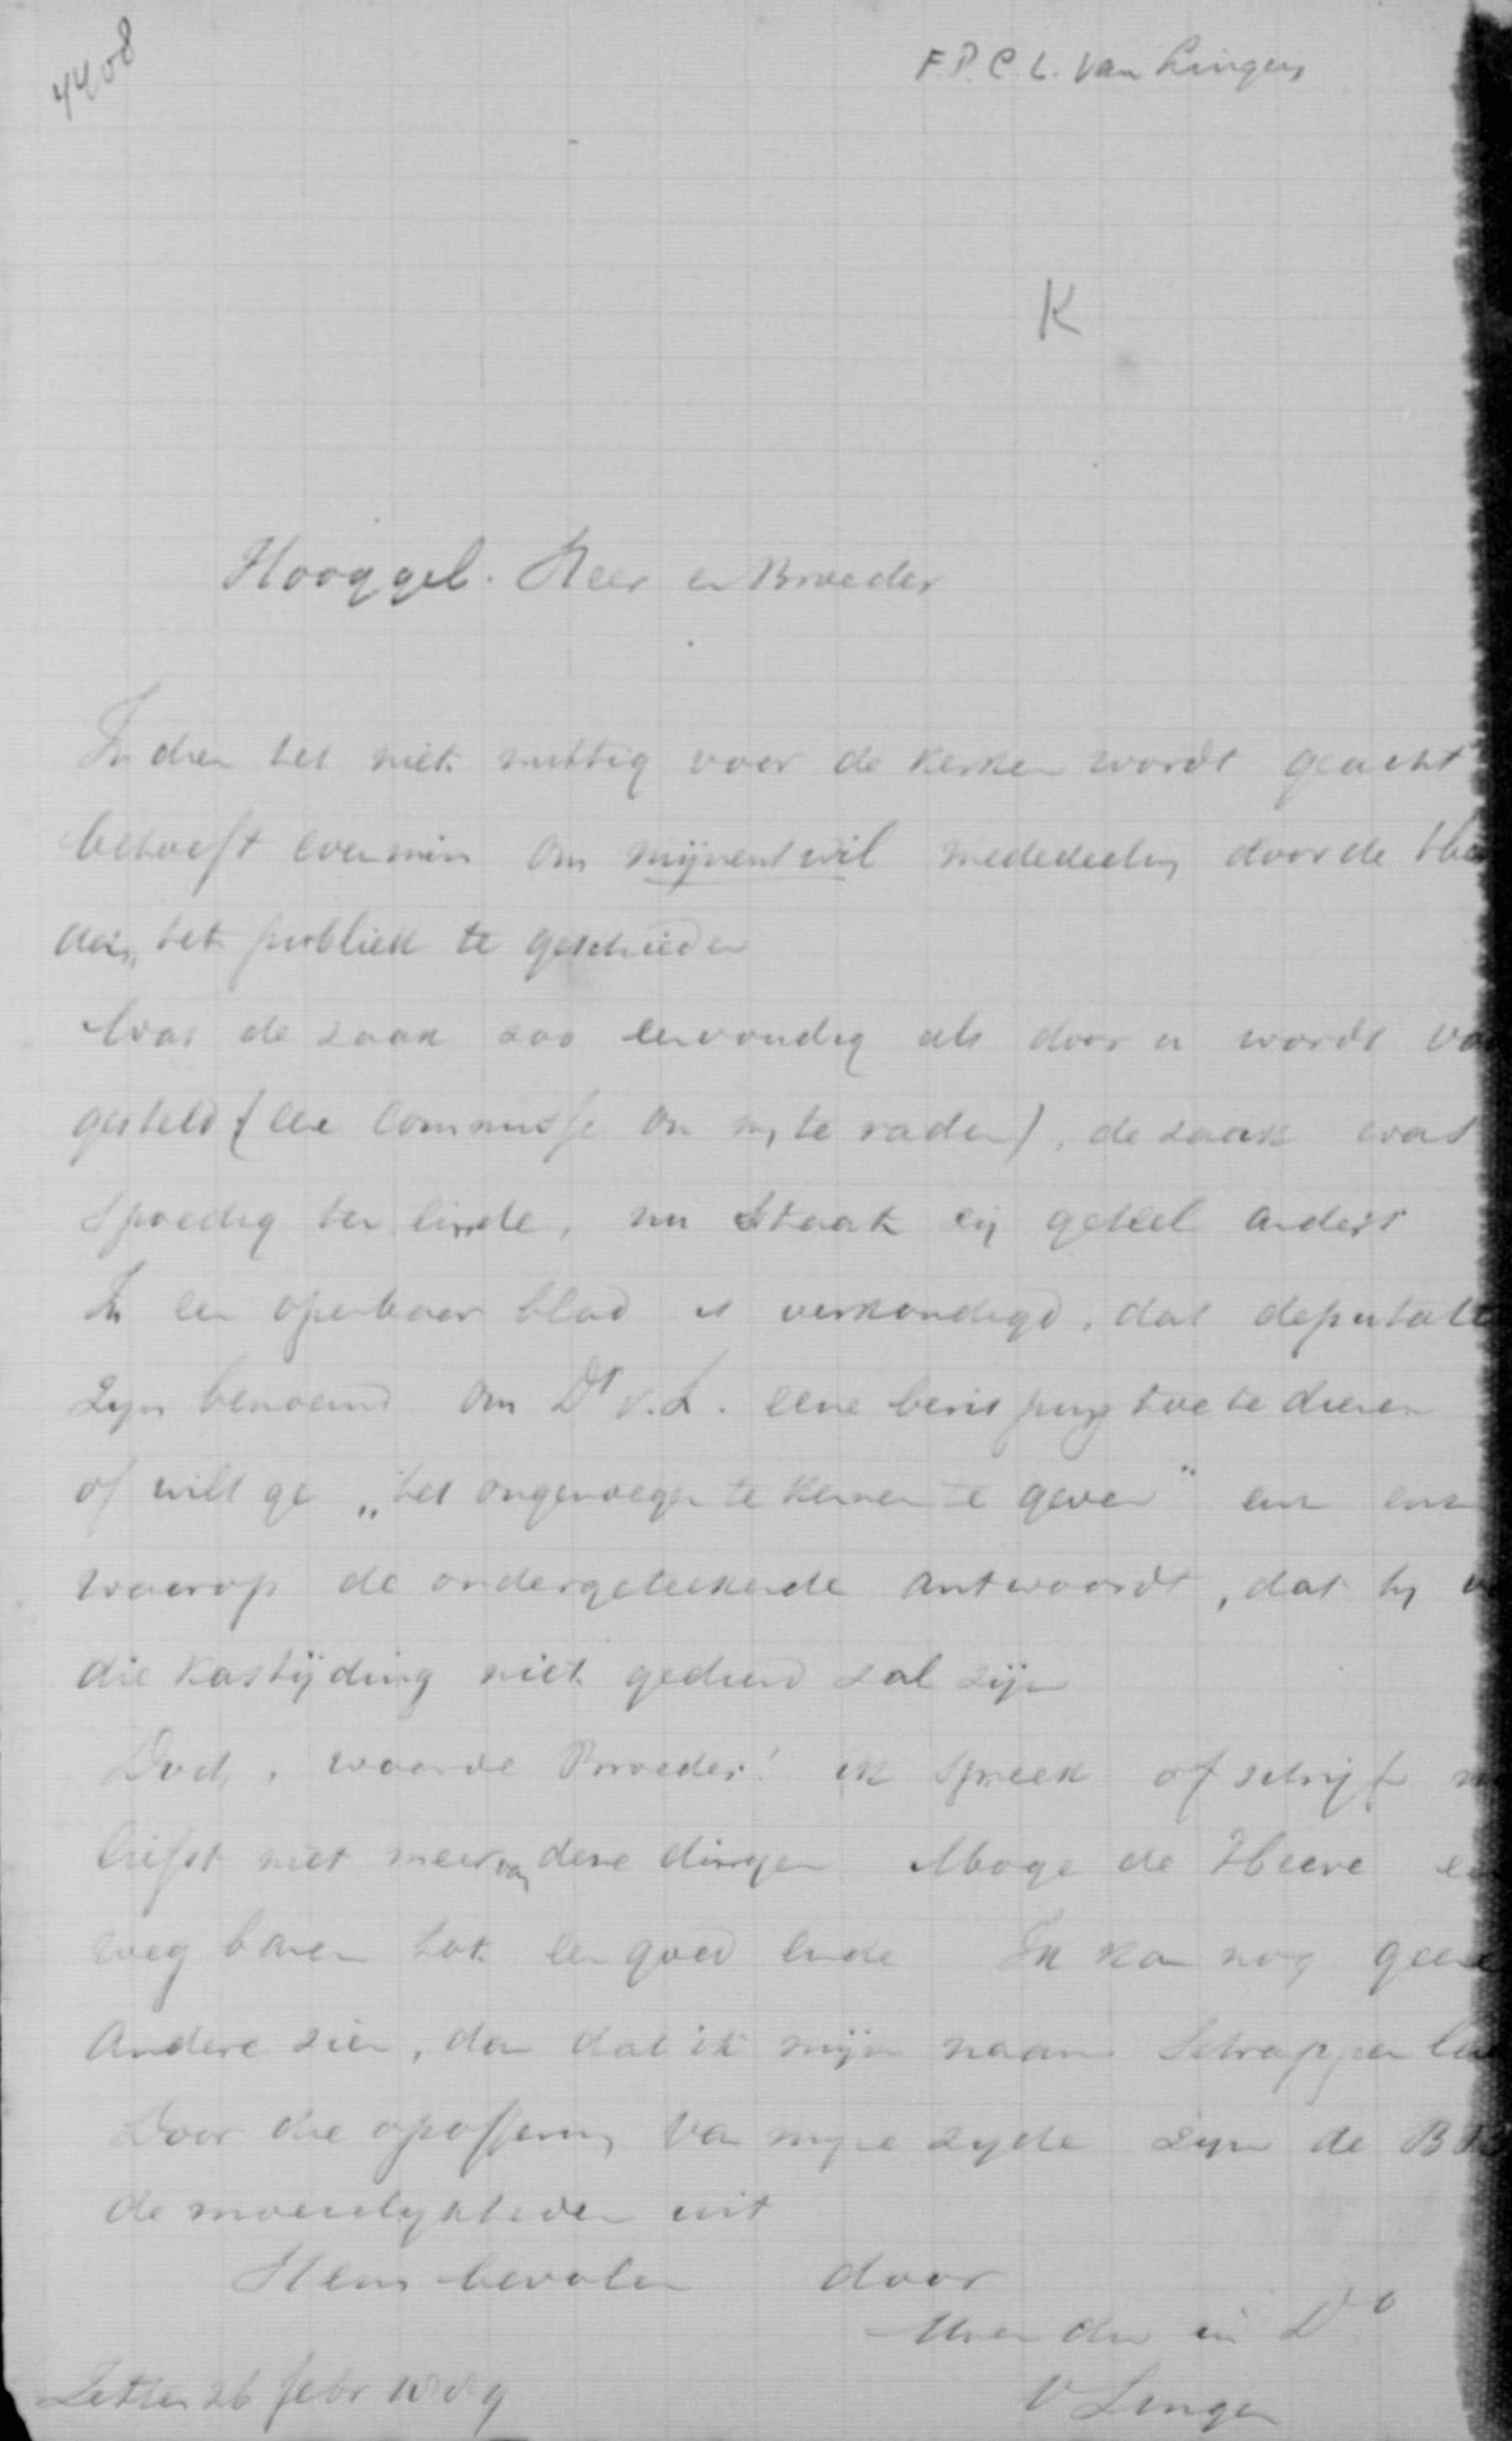 4408
F. P. C. L. van Lingen
K
Hooggel. Heer en Broeder
Indien het niet nuttig voor de kerken wordt geacht
behoeft evenmin om mijnentwil mededeeling door de
aan het publiek te geschieden
Was de zaak zoo eenvoudig als door u wordt
gesteld (eene commissie om mij te raden), de zaak was
spoedig ten einde, nu staat zij geheel anders
In een openbaar blad is verkondigd, dat
zijn benoemd om Ds v. L. eene berisping toe te dienen
of wilt ge „het ongenoegen te kennen te geven" enz enz
waarop de ondergeteekende antwoordt, dat hij
die kastijding niet gediend zal zijn
Doch, waarde Broeder! ik spreek of schrijf
liefst niet meer van deze dingen Moge de Heere
weg banen tot een goed einde Ik kan nog geen
andere zien, dan dat ik mijn naam schrappen
Door die opoffering van mijne zyde zyn de BB
de moeielykheden uit
Hem bevolen door
Uwen dw in Do
Zetten 26 febr
v Lingen